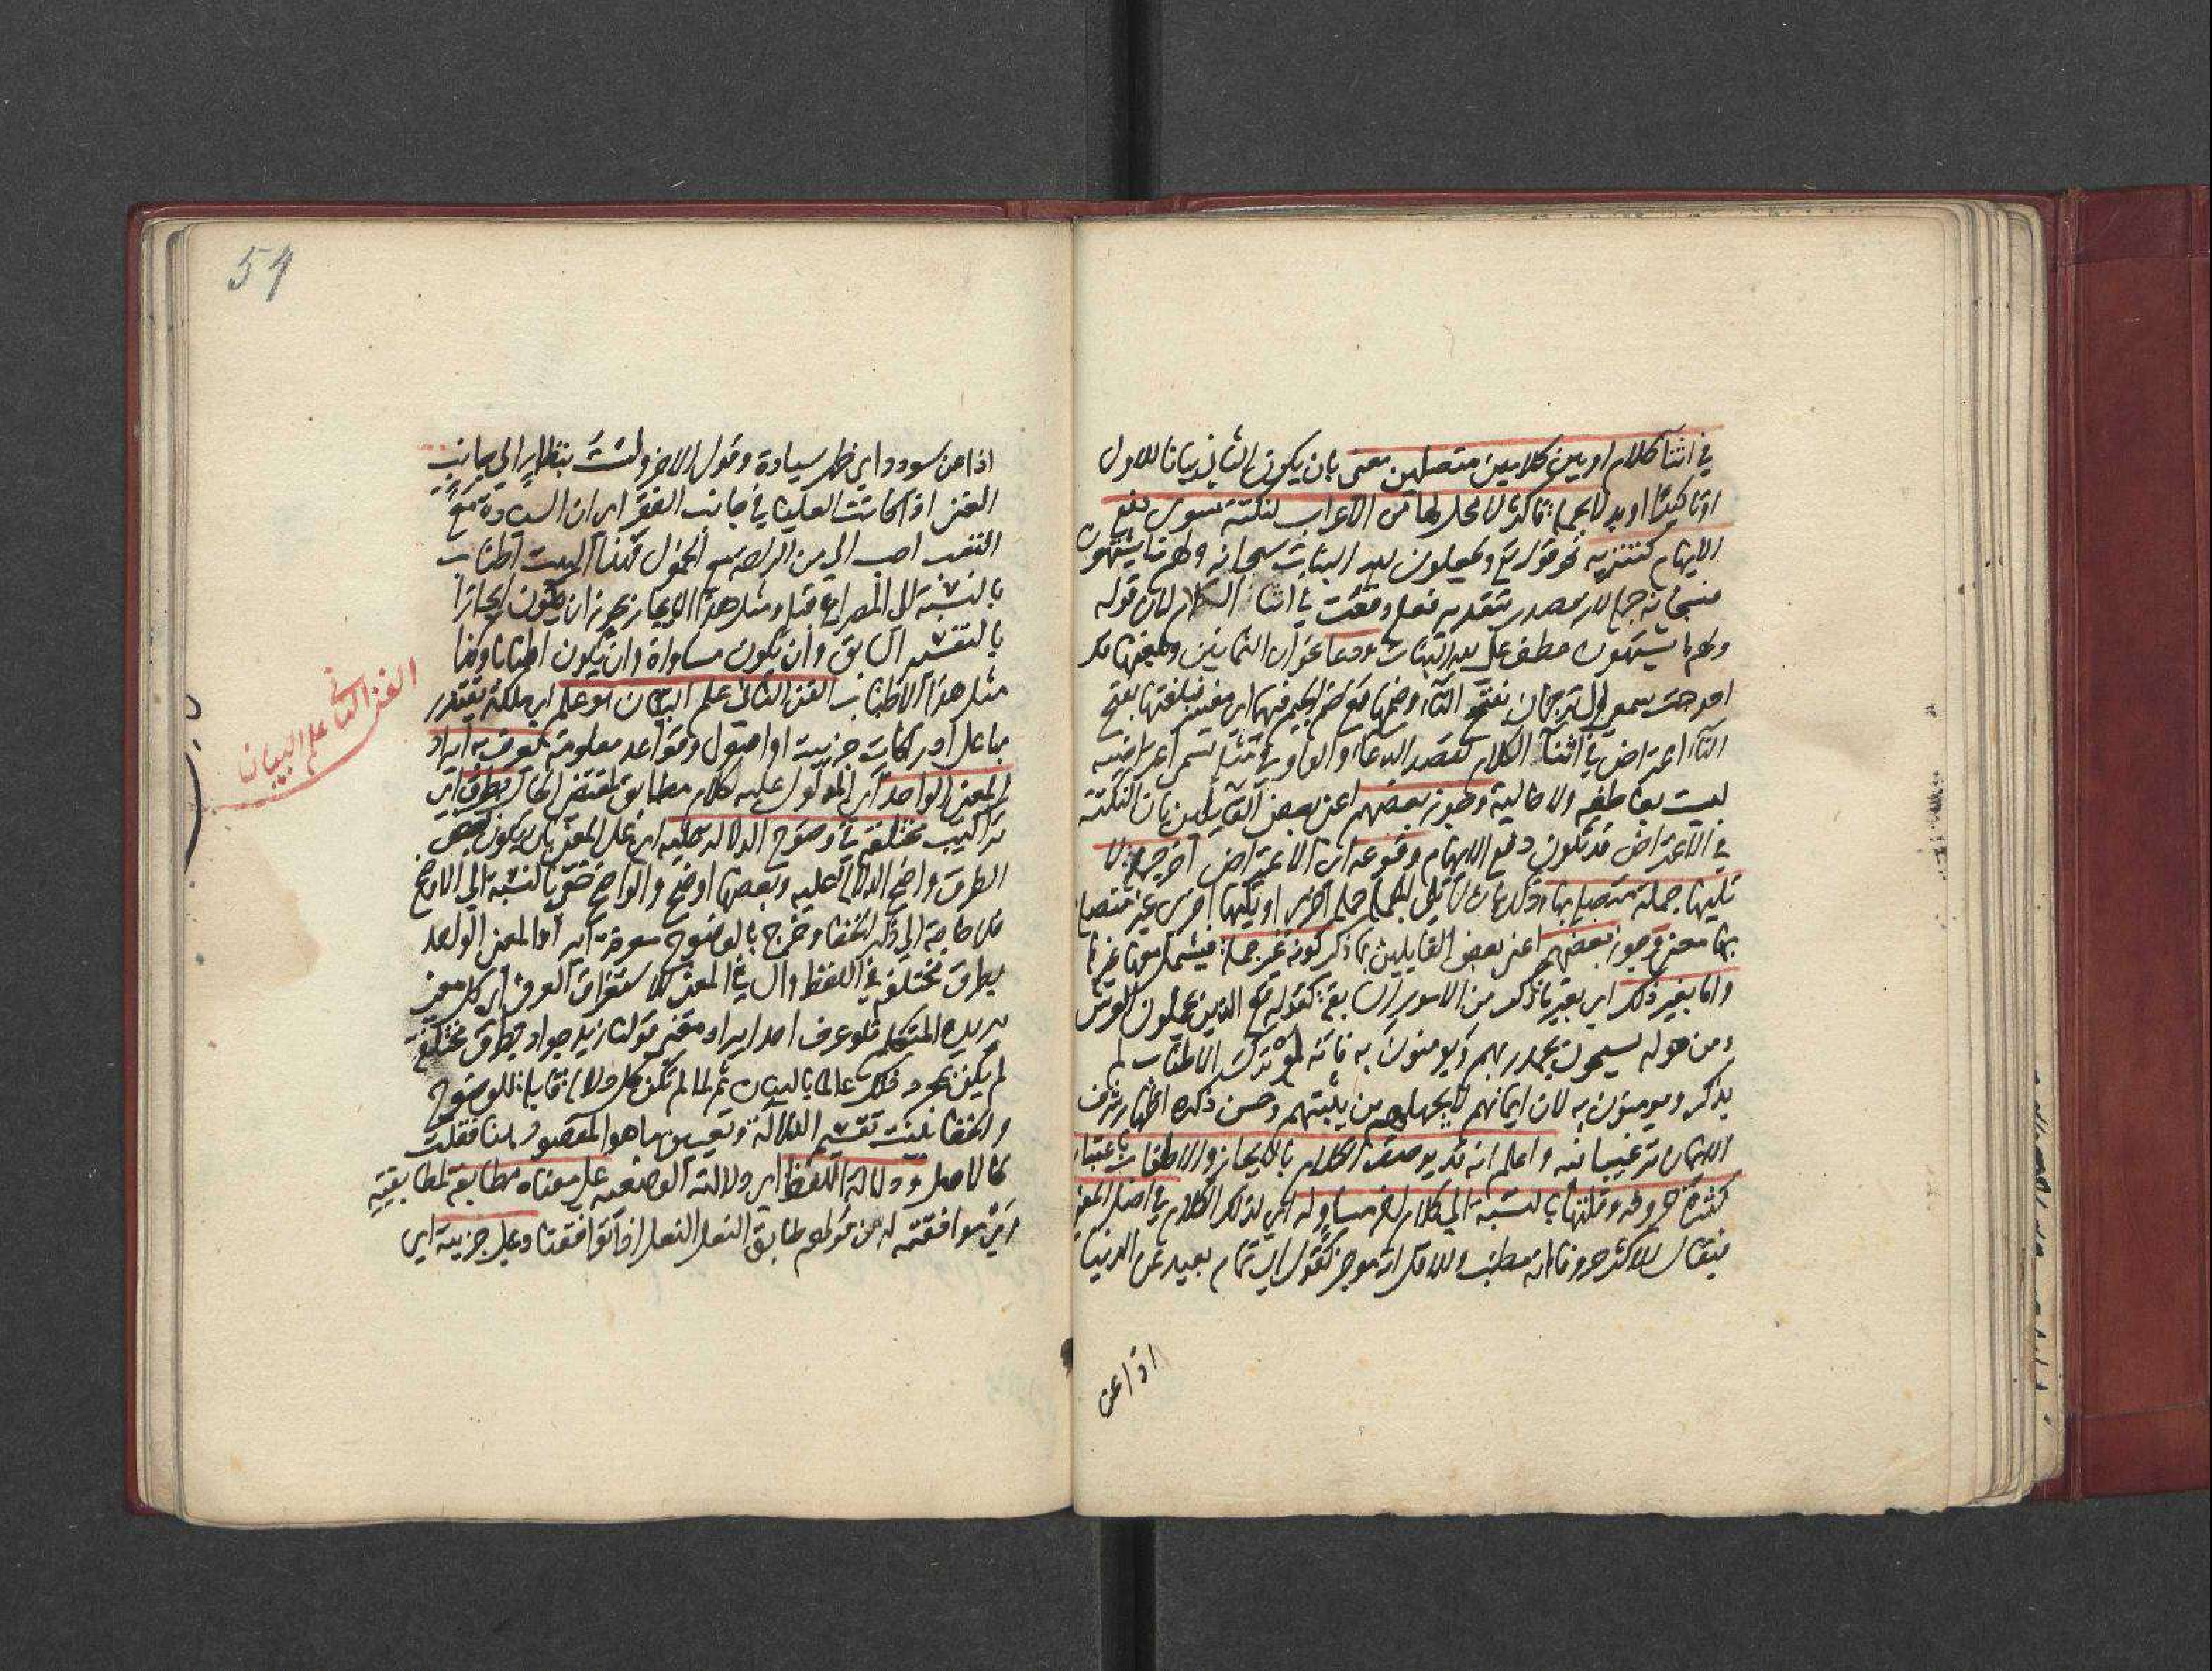 في اثنآ كلام او بين كلامين متصلين معنى بان يكون الثاني بيانا للاول
او تاكيدا او بدلا بجملة فاكثر لا محل لها من الاعراب لنكتة سوى دفع
الايهام كتنزيه نحو قوله تع ويجعلون لله البنات سبحانه ولهم ما يشتهون
فسبحانه جملة لانه مصدر بتقديره فعل وقعت في اثنا الكلام لان قوله
ولهم ما يشتهون عطف على لله البنات ودعا نحو ان الثمانين وبلغتها قد
احوجت سمعي الى ترجمان بفتح التآء وضمها مع ضم الجيم فيهما اي مفسر فبلغتها بفتح
التآء اعتراض في اثنآ الكلام لقصد الدعآ والواو في مثله تسمى اعتراضية
ليست بعاطفه ولا حالية وجوز بعضهم اعني بعض القايلين بان النكتة
في الاعتراض قد تكون دفع الايهام وقوعه اي الاعتراض آخر جملة لا
تليها جملة متصلة بها وذلك بان لا تلي الجملة جملة اخرى او تليها اخرى غير متصلة
بها معنى وجوز بعضهم اعني بعض القايلين بما ذكر كونه غير جملة فيشمل معها غيرها
واما بغير ذلك اي بغير ما ذكر من الامور السابقة كقوله تع الذين يحملون العرش
ومن حوله يسبحون بحمد ربهم ويومنون به فانه لو ترك الاطناب لم
يذكر ويومنون به لان ايمانهم لا يجهله من يثبتهم وحسن ذكره اظهار شرف
الايمان ترغيبا فيه واعلم انه قد يوصف الكلام بالايجاز والاطناب باعتبار
كثرة حروفه وقلتها بالنسبة الى كلام اخر مساو له اي لذلك الكلام في اصل المعنى
فيقال للاكثر حروفا انه مطنب وللاقل انه موجز كقول ابي تمام يصد عن الدنيا
اذا عن
54
اذا عن سودد اي ظهر سيادة وقول الاخر ولست بنظار الى جانب
الغنى اذا كانت العليا في جانب الفقر اي ان السيادة مع
التعب احب الي من الراحة مع الخمول فهذا البيت اطناب
بالنسبة الى المصراع قبله ومثل هذا الايجاز يجوز ان يكون ايجازا
بالتفسير السابق وان يكون مساواة وان يكون اطنابا وكذا
مثل هذا الاطناب الفن الثاني علم البيان هو علم اي ملكة يقتدر
بها على ادراكات جزيية او اصول وقواعد معلومة يعرف به ايراد
المعنى الواحد اي المدلول عليه بكلام مطابق لمقتضى الحال بطرق اي
تراكيب مختلفة في وضوح الدلالة عليه اي على المعنى بان يكون بعض
الطرق واضح الدلالة عليه وبعضها اوضح والواضح خفي بالنسبة الى الاوضح
فلا حاجة الى ذكر الخفا وخرج بالوضوح معرفة ايراد المعنى الواحد
بطرق مختلفة في اللفظ وال في المعنى للاستغراق العرفي اي كل معنى
يريده المتكلم فلو عرف احد ايراد معنى قولنا زيد جواد بطرق مختلفة
لم يكن بمجرد ذلك عالما بالبيان ثم لما لم تكن كل دلالة قابلة للوضوح
والخفا بينت تقسيم الدلالة وتعيين ما هو المقصود هنا فقلت
كالاصل ودلالة اللفظ اي دلالته الوضعيه على معناه مطابقة لمطابقته
اي موافقته له من قولهم طابق النعل النعل اذا توافقتا وعلى جزيه اي
الفن الثاني علم البيان